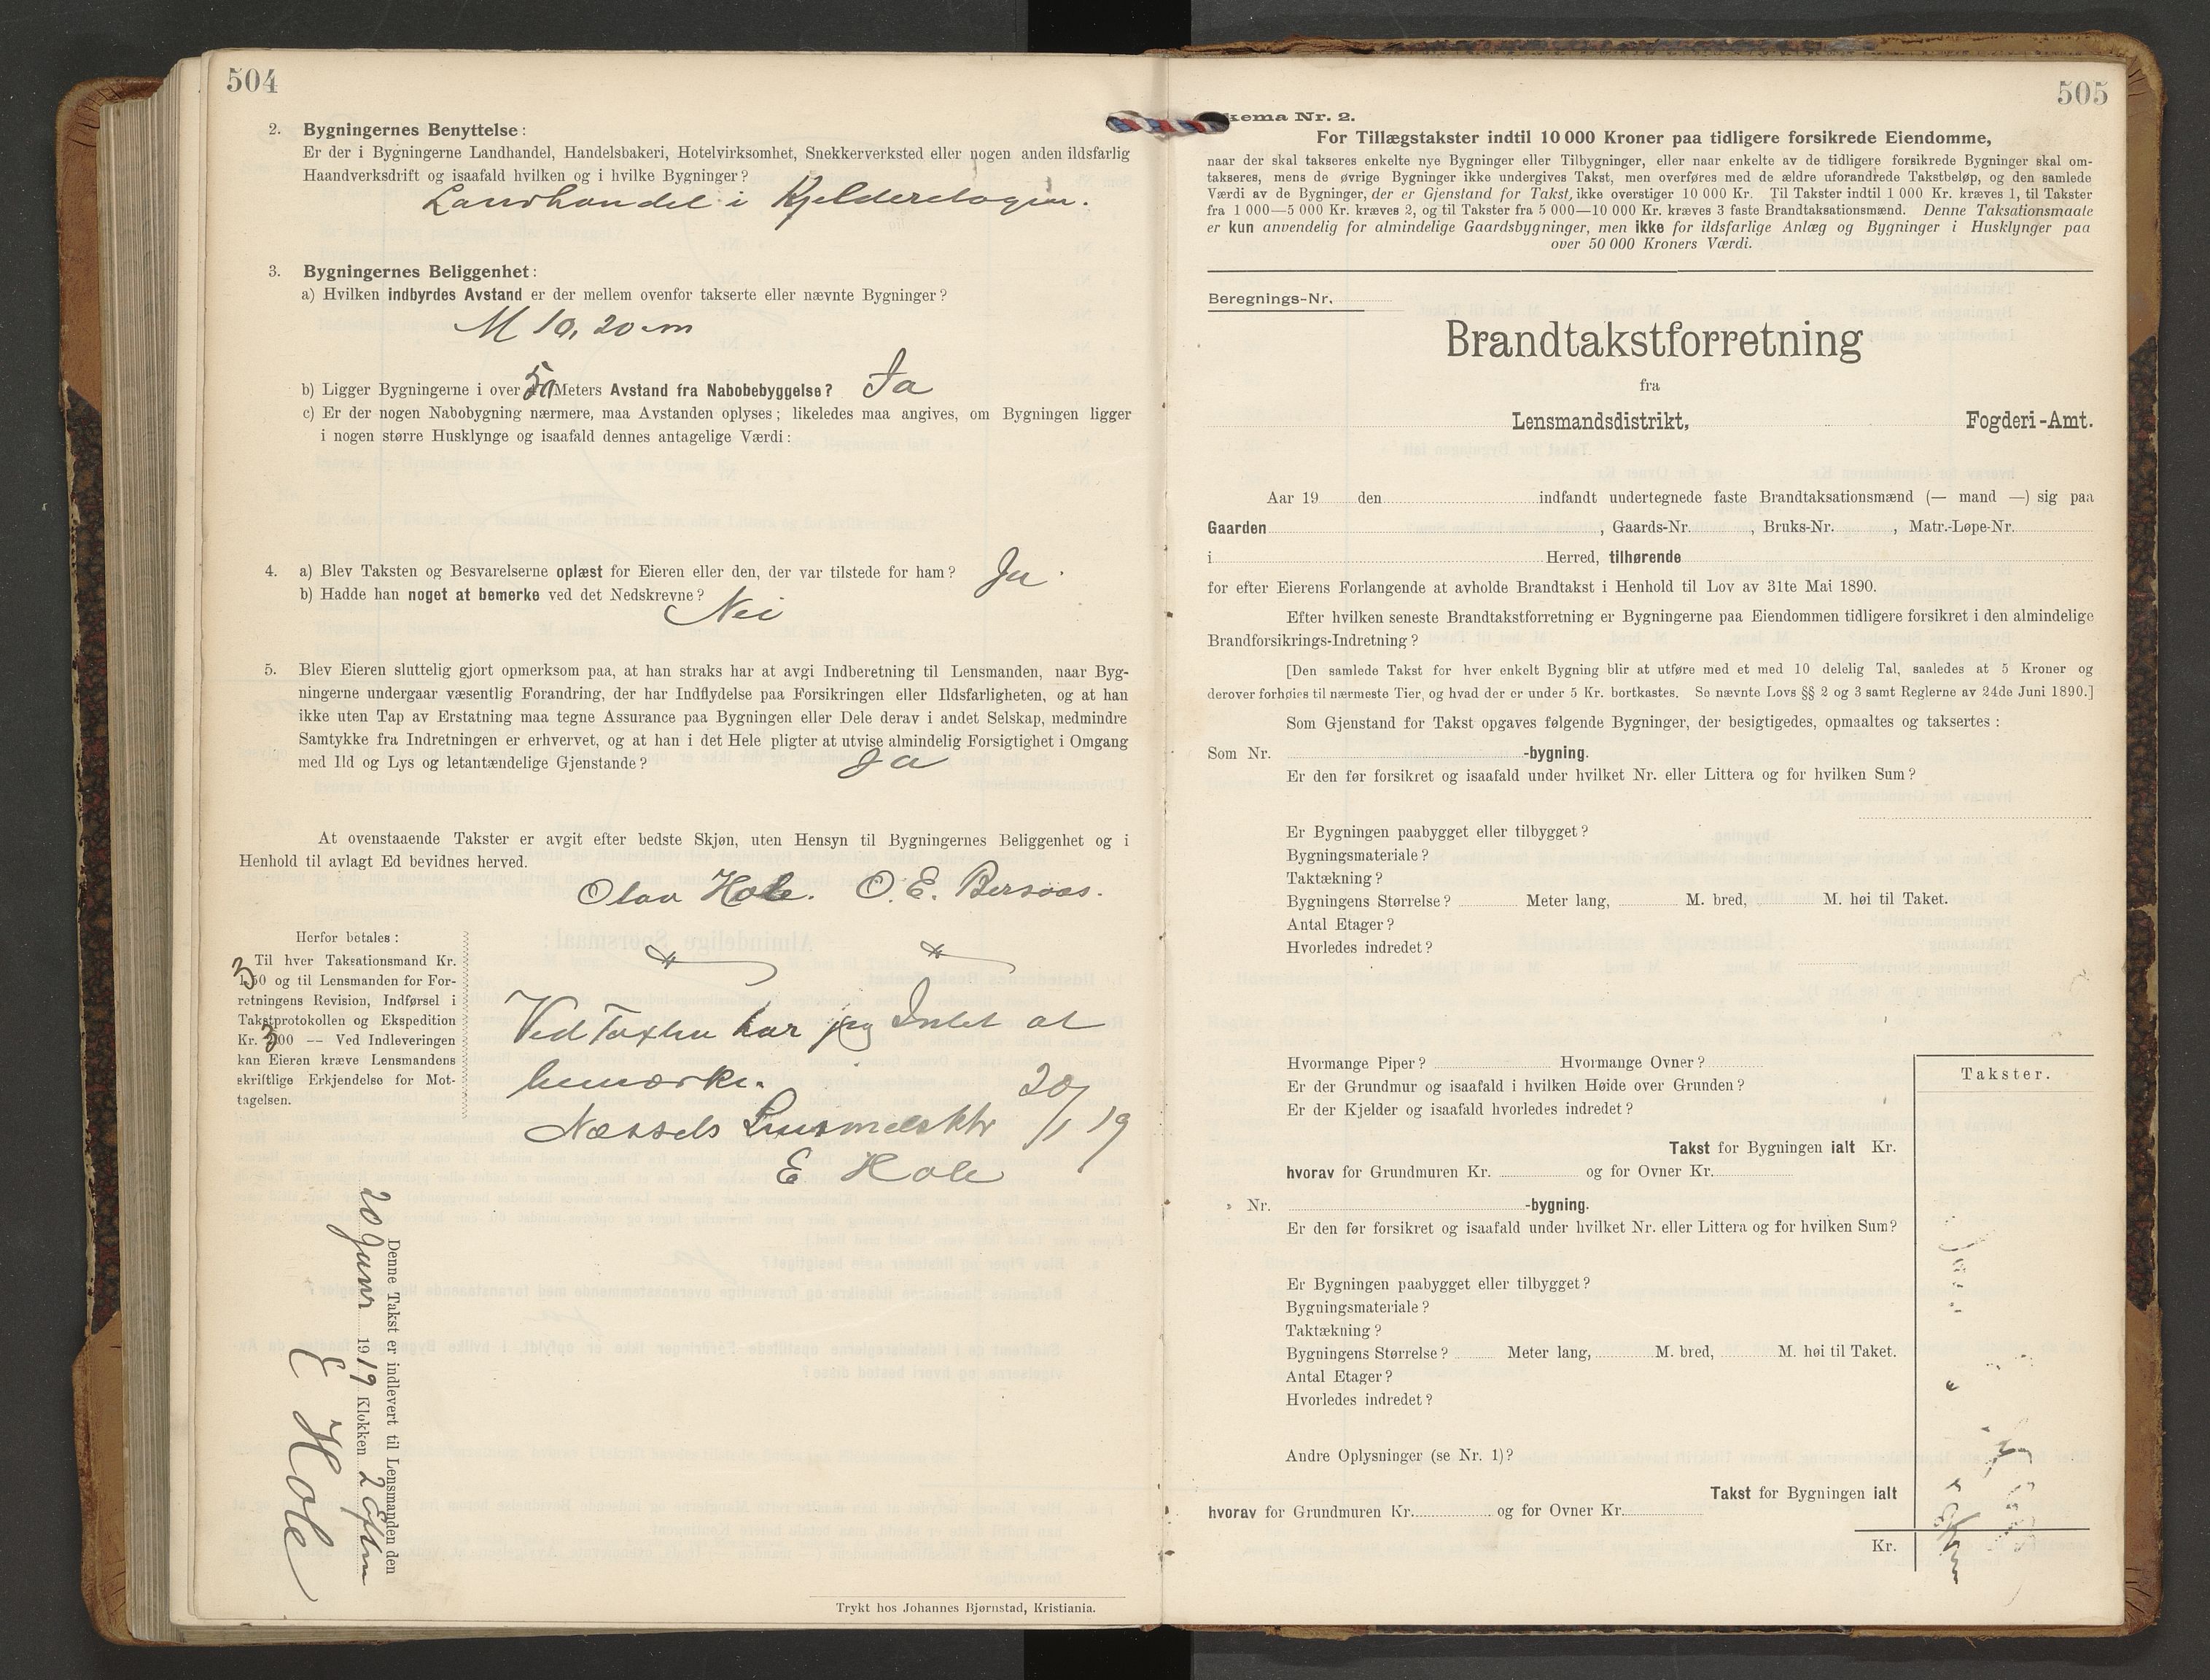 504
2. Bygningernes Benyttelse:
Er der i Bygningerne Landhandel, Handelsbakeri, Hotelvirksomhet, Snekkerverksted eller nogen anden ildsfarlig
Haandverksdrift og isaafald hvilken og i hvilke Bygninger?
Landhandel i Kjelderetagen.
3. Bygningernes Beliggenhet:
a) Hvilken indbyrdes Avstand er der mellem ovenfor takserte eller nævnte Bygninger?
M 10, 20 m
b) Ligger Bygningerne i over 50 Meters Avstand fra Nabobebyggelse? Ja
c) Er der nogen Nabobygning nærmere, maa Avstanden oplyses; likeledes maa angives, om Bygningen ligger
i nogen større Husklynge og isaafald dennes antagelige Værdi:
4. a) Blev Taksten og Besvarelserne oplæst for Eieren eller den, der var tilstede for ham? Ja
b) Hadde han noget at bemerke ved det Nedskrevne?
Nei
5. Blev Eieren sluttelig gjort opmerksom paa, at han straks har at avgi Indberetning til Lensmanden, naar Byg-
ningerne undergaar væsentlig Forandring, der har Indflydelse paa Forsikringen eller Ildsfarligheten, og at han
ikke uten Tap av Erstatning maa tegne Assurance paa Bygningen eller Dele derav i andet Selskap, medmindre
Samtykke fra Indretningen er erhvervet, og at han i det Hele pligter at utvise almindelig Forsigtighet i Omgang
med Ild og Lys og letantændelige Gjenstande? Ja
At ovenstaaende Takster er avgit efter bedste Skjøn, uten Hensyn til Bygningernes Beliggenhet og i
Henhold til avlagt Ed bevidnes herved.
Olav Hole. O. E. Bersaas.
Herfor betales:
Til hver Taksationsmand Kr.
3 50 og til Lensmanden for For-
retningens Revision, Indførsel i
Takstprotokollen og Ekspedition
Kr. 3 00 — Ved Indleveringen
kan Eieren kræve Lensmandens
skriftlige Erkjendelse for Mot-
tagelsen.
Ved Taxten har jeg Intet at
bemærke.
Næssets Lensmdsktr 20/1 19
E Hole
Denne Takst er indlevert til Lensmanden den
20 Janr 1919 Klokken 2 Eftm
E Hole
Trykt hos Johannes Bjørnstad, Kristiania.
505
kema Nr. 2.
For Tillægstakster indtil 10 000 Kroner paa tidligere forsikrede Eiendomme,
naar der skal takseres enkelte nye Bygninger eller Tilbygninger, eller naar enkelte av de tidligere forsikrede Bygninger skal om-
takseres, mens de øvrige Bygninger ikke undergives Takst, men overføres med de ældre uforandrede Takstbeløp, og den samlede
Værdi av de Bygninger, der er Gjenstand for Takst, ikke overstiger 10 000 Kr. Til Takster indtil 1 000 Kr. kræves 1, til Takster
fra 1 000—5 000 Kr. kræves 2, og til Takster fra 5 000—10 000 Kr. kræves 3 faste Brandtaksationsmænd. Denne Taksationsmaate
er kun anvendelig for almindelige Gaardsbygninger, men ikke for ildsfarlige Anlæg og Bygninger i Husklynger paa
over 50 000 Kroners Værdi.
Beregnings-Nr.
Brandtakstforretning
fra
Lensmandsdistrikt, Fogderi-Amt.
Aar 19 den indfandt undertegnede faste Brandtaksationsmænd (— mand —) sig paa
Gaarden , Gaards-Nr. , Bruks-Nr. , Matr.-Løpe-Nr.
i Herred, tilhørende
for efter Eierens Forlangende at avholde Brandtakst i Henhold til Lov av 31te Mai 1890.
Efter hvilken seneste Brandtakstforretning er Bygningerne paa Eiendommen tidligere forsikret i den almindelige
Brandforsikrings-Indretning?
[Den samlede Takst for hver enkelt Bygning blir at utføre med et med 10 delelig Tal, saaledes at 5 Kroner og
derover forhøies til nærmeste Tier, og hvad der er under 5 Kr. bortkastes. Se nævnte Lovs §§ 2 og 3 samt Reglerne av 24de Juni 1890.]
Som Gjenstand for Takst opgaves følgende Bygninger, der besigtigedes, opmaaltes og taksertes:
Som Nr. -bygning.
Er den før forsikret og isaafald under hvilket Nr. eller Littera og for hvilken Sum?
Er Bygningen paabygget eller tilbygget?
Bygningsmateriale?
Taktækning?
Bygningens Størrelse? Meter lang, M. bred, M. høi til Taket.
Antal Etager?
Hvorledes indredet?
Hvormange Piper? Hvormange Ovner?
Takster.
Er der Grundmur og isaafald i hvilken Høide over Grunden?
Er der Kjelder og isaafald hvorledes indredet?
Takst for Bygningen ialt Kr.
hvorav for Grundmuren Kr. og for Ovner Kr.
» Nr. -bygning.
Er den før forsikret og isaafald under hvilket Nr. eller Littera og for hvilken Sum?
Er Bygningen paabygget eller tilbygget?
Bygningsmateriale?
Taktækning?
Bygningens Størrelse? Meter lang, M. bred, M. høi til Taket.
Antal Etager?
Hvorledes indredet?
Andre Oplysninger (se Nr. 1)?
Takst for Bygningen ialt
hvorav for Grundmuren Kr. og for Ovner Kr.
Kr.